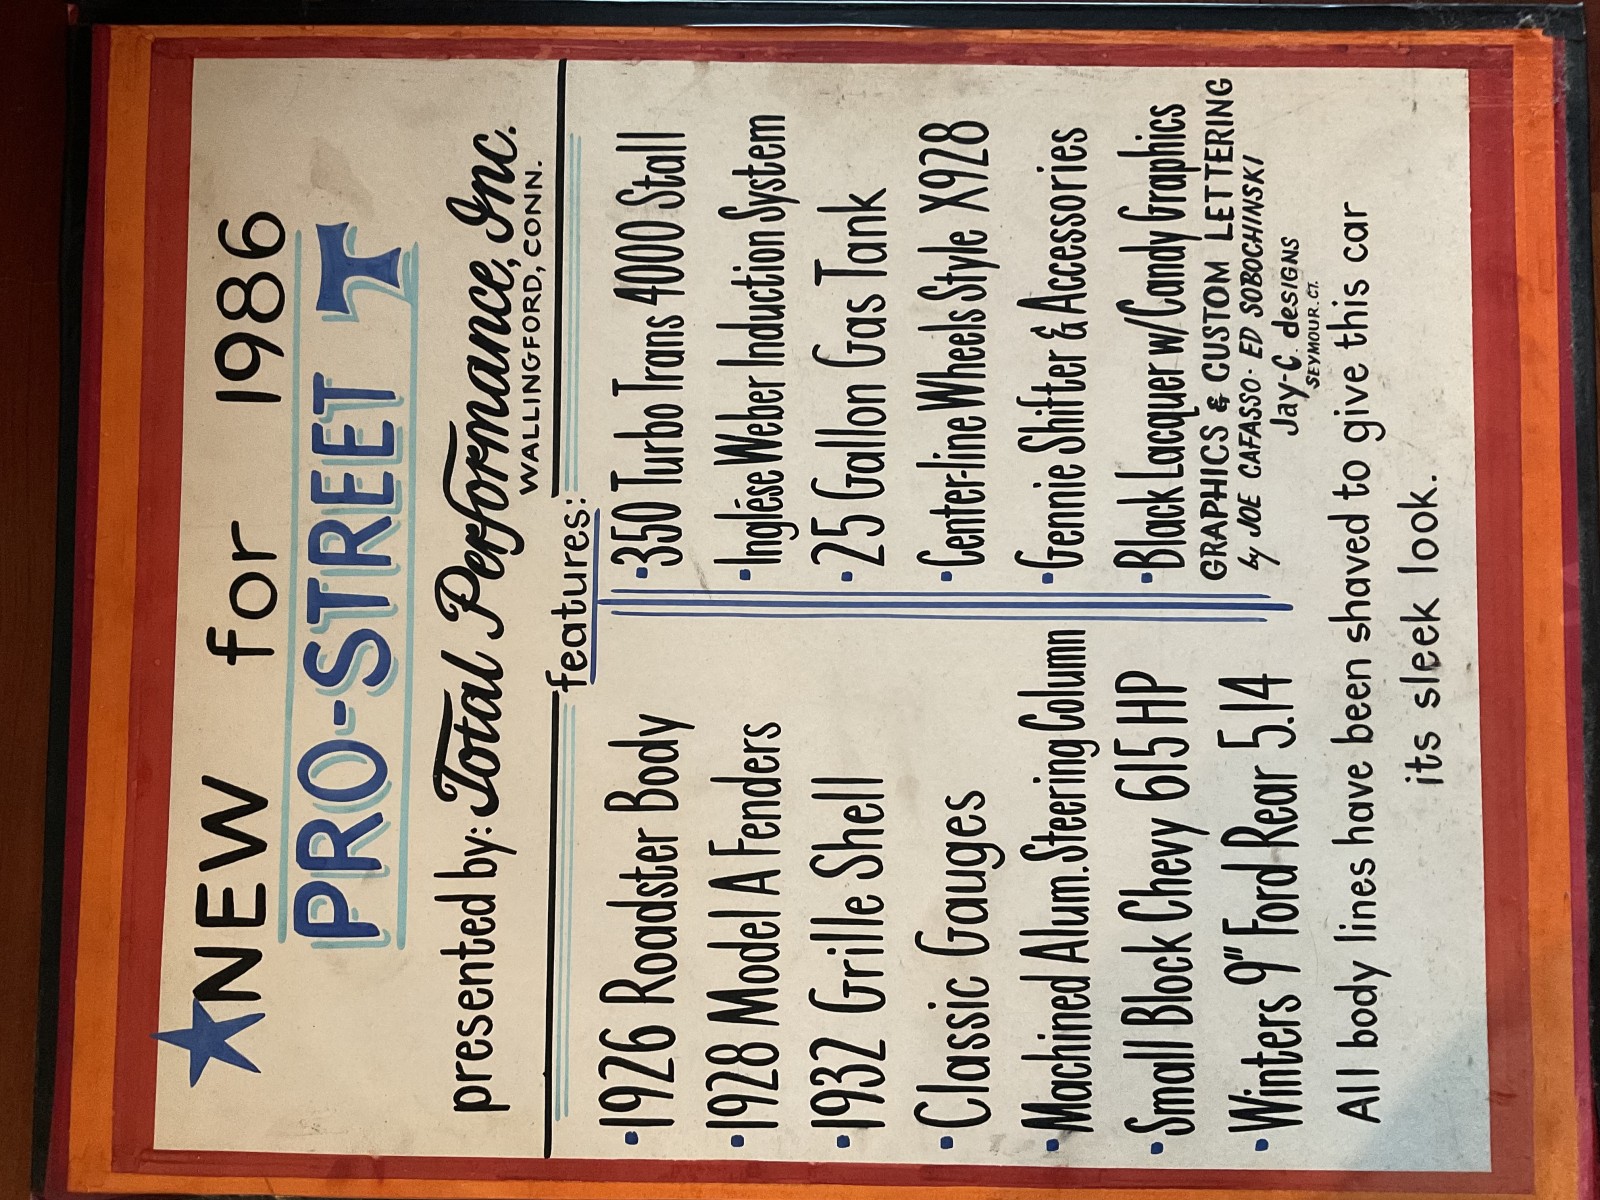 NEW for 1986
PRO-STREET T
presented by: Total Performance, Inc.
WALLINGFORD, CONN.
features:
• 1926 Roadster Body
• 1928 Model A Fenders
• 1932 Grille Shell
• Classic Gauges
• Machined Alum. Steering Column
• Small Block Chevy 615 HP
• Winters 9" Ford Rear 5.14
• 350 Turbo Trans 4000 Stall
• Inglése Weber Induction System
• 25 Gallon Gas Tank
• Center-line Wheels Style X928
• Gennie Shifter & Accessories
• Black Lacquer w/Candy Graphics
GRAPHICS & CUSTOM LETTERING
by JOE CAFASSO • ED SOBOCHINSKI
Jay-C designs
SEYMOUR. CT.
All body lines have been shaved to give this car
its sleek look.